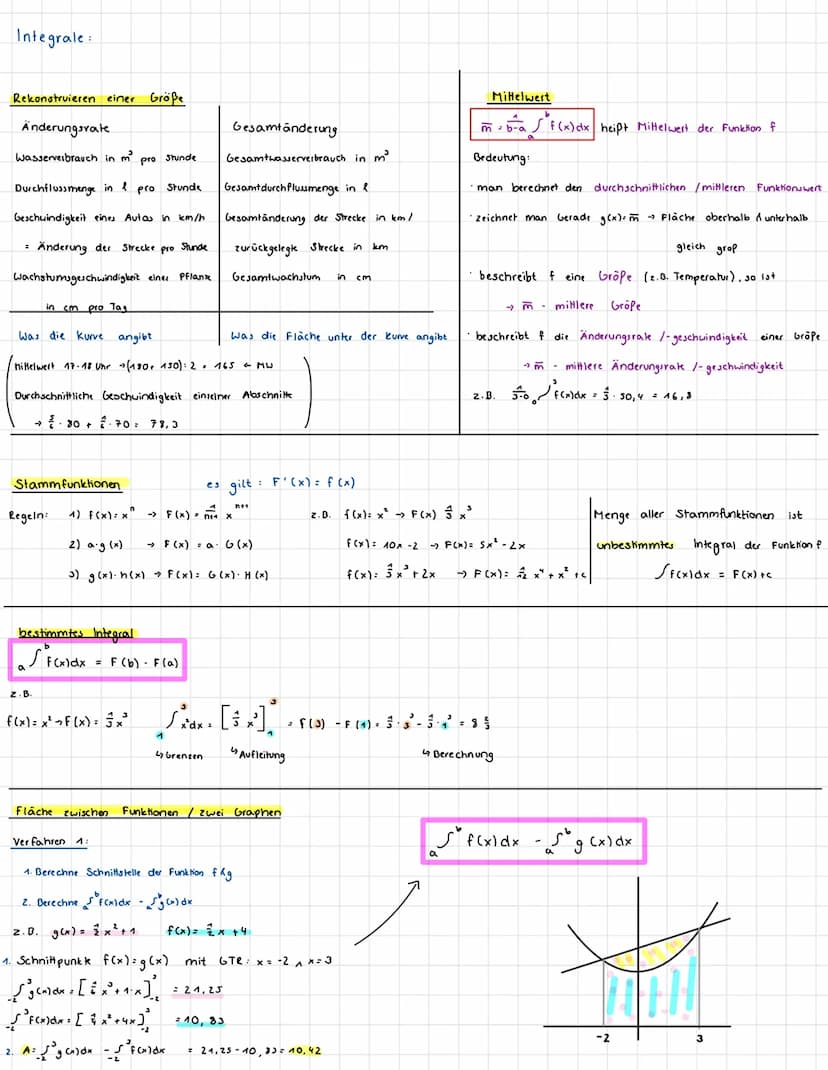 Integrale:
Rekonstruieren einer Größe
Änderungsrate
Gesamtänderung
Wasserverbrauch in m³ pro Stunde
Gesamtwasserverbrauch in m³
Durchflussmenge in l pro Stunde
Gesamtdurchflussmenge in l
Geschwindigkeit eines Autos in km/h
Gesamtänderung der Strecke in km/
= Änderung der Strecke pro Stunde
zurückgelegte Strecke in km
Wachstumsgeschwindigkeit einer Pflanze
Gesamtwachstum in cm
in cm pro Tag
Was die Kurve angibt
Was die Fläche unter der Kurve angibt
Mittelwert 17-18 Uhr → (180+150):2 = 165 ← MW
Durchschnittliche Geschwindigkeit einzelner Abschnitte
→ 5/6 · 80 + 1/6 · 70 = 78,3
Mittelwert
m̅ = 1/b-a a∫b f(x)dx heißt Mittelwert der Funktion f
Bedeutung:
· man berechnet den durchschnittlichen /mittleren Funktionswert
· zeichnet man Gerade g(x)=m̅ → Fläche oberhalb & unterhalb
gleich groß
· beschreibt f eine Größe (z.B. Temperatur), so ist
→ m̅ - mittlere Größe
· beschreibt f die Änderungsrate /-geschwindigkeit einer Größe
→ m̅ - mittlere Änderungsrate /-geschwindigkeit
z.B. 1/3-0 0∫3 f(x)dx = 1/3 · 50,4 = 16,8
Stammfunktionen
es gilt: F'(x) = f(x)
Regeln: 1) f(x) = xⁿ → F(x) = 1/n+1 xⁿ⁺¹
z.B. f(x) = x² → F(x) 1/3 x³
2) a·g(x) → F(x) = a · G(x)
f(x) = 10x - 2 → F(x) = 5x² - 2x
3) g(x)·h(x) → F(x) = G(x)·H(x)
f(x) = 1/3 x³ + 2x → F(x) = 1/12 x⁴ + x² + c
Menge aller Stammfunktionen ist
unbestimmtes Integral der Funktion f
∫f(x)dx = F(x)+c
bestimmtes Integral
a∫b F(x)dx = F(b) - F(a)
z.B.
f(x) = x² → F(x) = 1/3 x³
1∫3 x²dx = [1/3 x³]1 3 = F(3) - F(1) = 1/3 · 3³ - 1/3 · 1³ = 8 2/3
↳ Grenzen
↳ Aufleitung
↳ Berechnung
Fläche zwischen Funktionen / zwei Graphen
a∫b f(x)dx - a∫b g(x)dx
Verfahren 1:
1. Berechne Schnittstelle der Funktion f & g
2. Berechne a∫b f(x)dx - a∫b g(x)dx
z.B. g(x) = 1/2 x² + 1 f(x) = 1/2 x + 4
1. Schnittpunkt f(x) = g(x) mit GTR: x = -2 ∧ x = 3
-2∫3 g(x)dx = [1/6 x³ + 1·x]-2 3 = 21,25
-2∫3 F(x)dx = [1/4 x² + 4x]-2 3 = 10,83
2. A = -2∫3 g(x)dx - -2∫3 f(x)dx = 21,25 - 10,83 = 10,42
-2
3